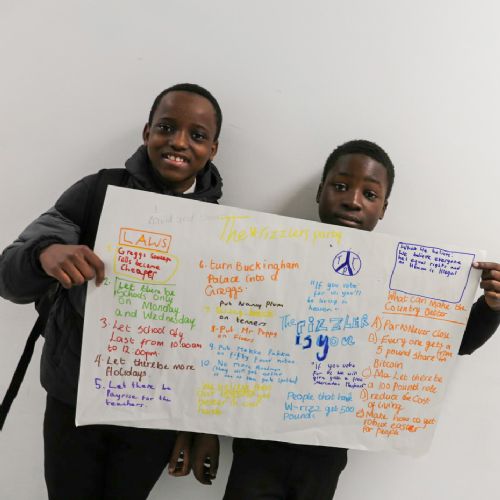 The Rizzlers party
LAWS
Greggs Sausage
rolls become
Cheaper
2. Let there be
Schools Only
on Monday
and Wednesday
3. Let school day
Last from 10:00am
to 12.00pm.
4. Let there be more
Holidays
5. Let there be
Payrise for the
teachers.
6. turn Buckingham
Palace into a
Greggs
Put Nanny Plum
on tenners
8. Put Mr Poppy
on fivers
9. Put
on Fifty Pount notes
10. No more
"If you vote
for us you'll
be living in
heaven"
The RIZZLER
is you
"If you
vote
For us we will
give you a free
People that have
W-rizz get 500
Pounds
What we believe:
We believe everyone
has equal rights and
no Human is illegal
What Can Make the
Country Better
A) Parks Never Close
B) Every one gets a
5 pound share on
Bitcoin
C) Let there be
a 100 Pound note
D) reduce the Cost
of living
E) Make how to get
robux easier
for People